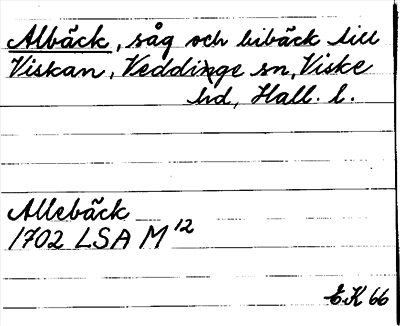 Albäck, såg och bibäck till
Viskan, Veddinge sn, Viske
hd, Hall. l.
Allebäck
1702 LSA M 12
E.K 66